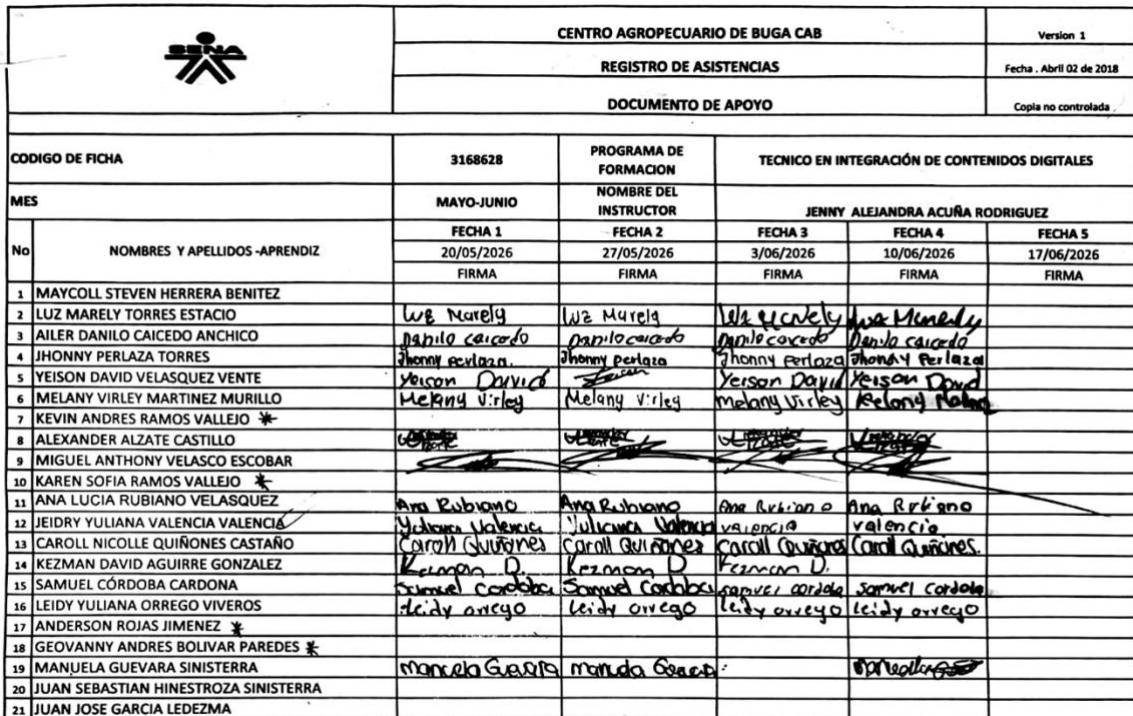 SENA
CENTRO AGROPECUARIO DE BUGA CAB Version 1
REGISTRO DE ASISTENCIAS Fecha . Abril 02 de 2018
DOCUMENTO DE APOYO Copia no controlada
CODIGO DE FICHA 3168628 PROGRAMA DE FORMACION TECNICO EN INTEGRACIÓN DE CONTENIDOS DIGITALES
MES MAYO-JUNIO NOMBRE DEL INSTRUCTOR JENNY ALEJANDRA ACUÑA RODRIGUEZ
No NOMBRES Y APELLIDOS -APRENDIZ FECHA 1 FECHA 2 FECHA 3 FECHA 4 FECHA 5
20/05/2026 27/05/2026 3/06/2026 10/06/2026 17/06/2026
FIRMA FIRMA FIRMA FIRMA FIRMA
1 MAYCOLL STEVEN HERRERA BENITEZ
2 LUZ MARELY TORRES ESTACIO Luz Marely Luz Marely Luz Marely Luz Marely
3 AILER DANILO CAICEDO ANCHICO Danilo caicedo Danilo caicedo Danilo caicedo Danilo caicedo
4 JHONNY PERLAZA TORRES Jhonny perlaza. Jhonny perlaza Jhonny perlaza Jhonny Perlaza
5 YEISON DAVID VELASQUEZ VENTE Yeison David Yeison David Yeison David
6 MELANY VIRLEY MARTINEZ MURILLO Melany Virley Melany Virley melany Virley
7 KEVIN ANDRES RAMOS VALLEJO *
8 ALEXANDER ALZATE CASTILLO
9 MIGUEL ANTHONY VELASCO ESCOBAR
10 KAREN SOFIA RAMOS VALLEJO *
11 ANA LUCIA RUBIANO VELASQUEZ Ana Rubiano Ana Rubiano Ana Rubiano Ana Rubiano
12 JEIDRY YULIANA VALENCIA VALENCIA Yuliana Valencia Yuliana Valencia valencia valencia
13 CAROLL NICOLLE QUIÑONES CASTAÑO Caroll Quiñones Caroll Quiñones Caroll Quiñones Caroll Quiñones.
14 KEZMAN DAVID AGUIRRE GONZALEZ Kezman D Kezman D Kezman D.
15 SAMUEL CÓRDOBA CARDONA Samuel cordoba Samuel Cordoba samuel cordoba samuel cordoba
16 LEIDY YULIANA ORREGO VIVEROS leidy orrego leidy orrego leidy orrego leidy orrego
17 ANDERSON ROJAS JIMENEZ *
18 GEOVANNY ANDRES BOLIVAR PAREDES *
19 MANUELA GUEVARA SINISTERRA manuela Guevara manuela Guevara
20 JUAN SEBASTIAN HINESTROZA SINISTERRA
21 JUAN JOSE GARCIA LEDEZMA